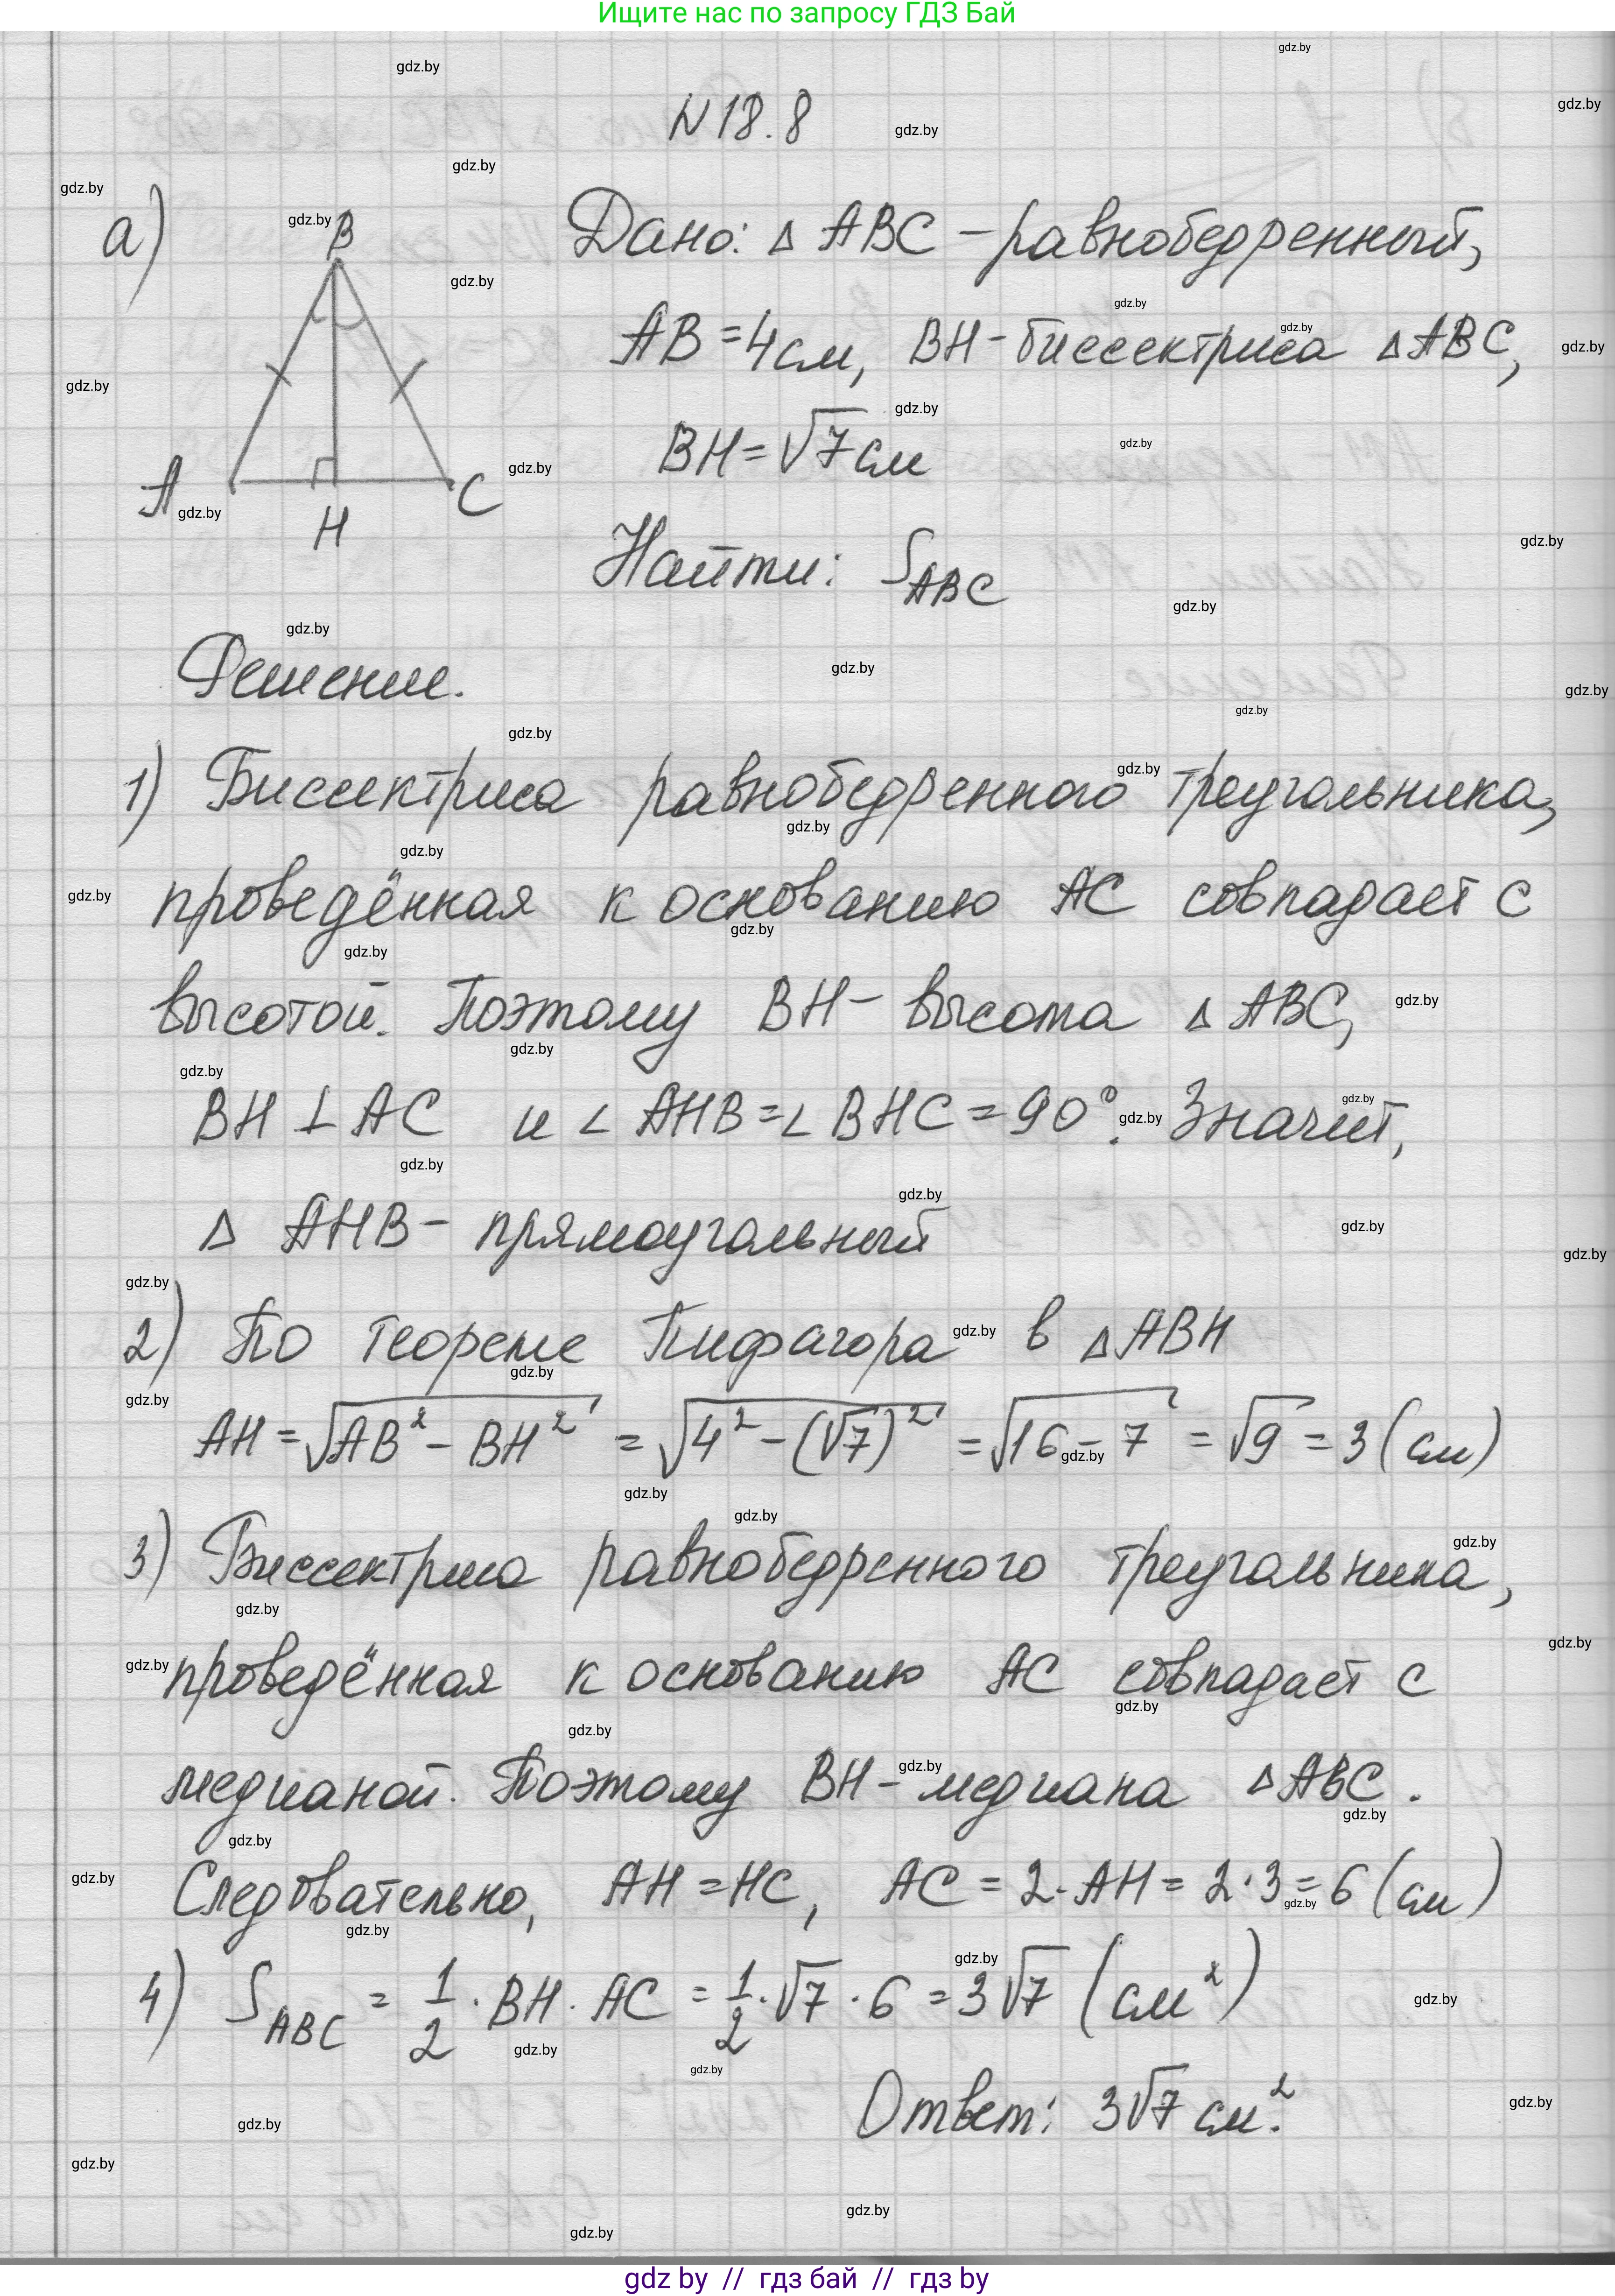 Ищите нас по запросу ГДЗ Бай
N 18.8
а)
B
A
H
C
Дано: Δ ABC – равнобедренный,
AB = 4 см, BH – биссектриса Δ ABC,
BH = √7 см
Найти: S_ABC
Решение.
1) Биссектриса равнобедренного треугольника,
проведённая к основанию AC совпадает с
высотой. Поэтому BH – высота Δ ABC,
BH ⊥ AC и ∠ AHB = ∠ BHC = 90°. Значит,
Δ AHB – прямоугольный
2) По теореме Пифагора в Δ ABH
AH = √(AB² – BH²) = √(4² – (√7)²) = √(16 – 7) = √9 = 3 (см)
3) Биссектриса равнобедренного треугольника,
проведённая к основанию AC совпадает с
медианой. Поэтому BH – медиана Δ ABC.
Следовательно, AH = HC, AC = 2 · AH = 2 · 3 = 6 (см)
4) S_ABC = 1/2 · BH · AC = 1/2 · √7 · 6 = 3√7 (см²)
Ответ: 3√7 см².
gdz by // гдз бай // гдз by